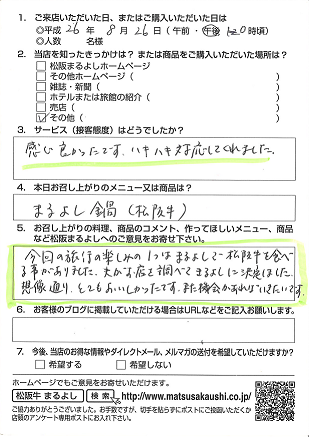 1. ご来店いただいた日、またはご購入いただいた日は
◎平成 26 年 8 月 26 日(午前・午後 1:20 時頃)
◎人数 名様
2. 当店を知ったきっかけは? または商品をご購入いただいた場所は?
□松阪まるよしホームページ
□その他ホームページ( )
□雑誌・新聞( )
□ホテルまたは旅館の紹介( )
□売店( )
☑その他( )
3. サービス(接客態度)はどうでしたか?
感じ良かったです。ハキハキ対応してくれました。
4. 本日お召し上がりのメニュー又は商品は?
まるよし鍋(松阪牛)
5. お召し上がりの料理、商品のコメント、作ってほしいメニュー、商品
など松阪まるよしへのご意見をお寄せ下さい。
今回の旅行の楽しみの1つはまるよしで松阪牛を食べ
る事がありました。夫がお店を調べてまるよしに決定しました。
想像通り、とてもおいしかったです。また機会があれば行きたいです。
6. お客様のブログに掲載していただける場合はURLなどをご記入お願いします。
7. 今後、当店のお得な情報やダイレクトメール、メルマガの送付を希望していただけますか?
□希望する □希望しない
ホームページでもご意見をお寄せいただけます。
松阪牛 まるよし 検索 http://www.matsusakaushi.co.jp/
ご協力ありがとうございました。お手数ですが、切手を貼らずにポストにご投函いただくか
店頭のアンケート専用ポストにお入れ下さい。